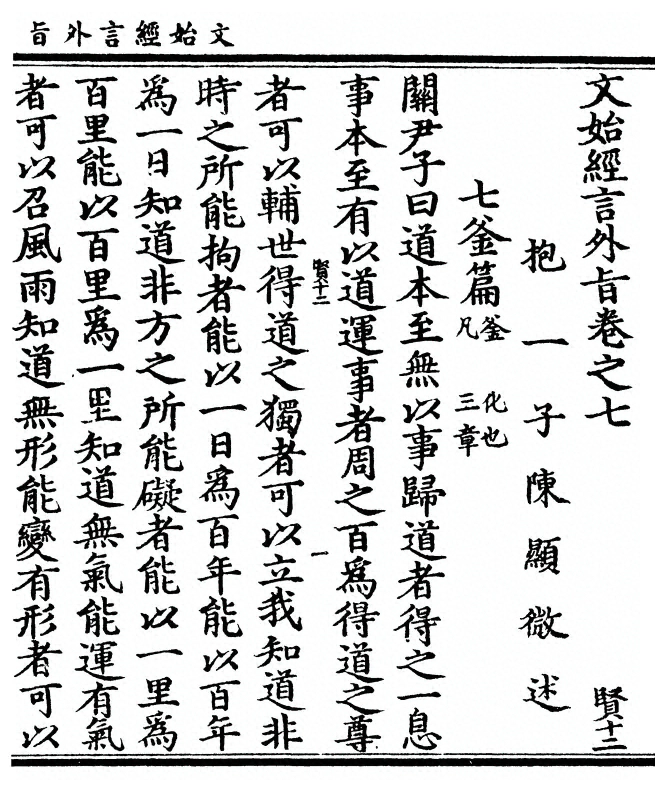 文始經言外旨
文始經言外旨卷之七
賢十二
抱一子陳顯微述
七釜篇
釜化也
凡三章
關尹子曰道本至無以事歸道者得之一息
事本至有以道運事者周之百爲得道之尊
賢十二
一
者可以輔世得道之獨者可以立我知道非
時之所能拘者能以一日爲百年能以百年
爲一日知道非方之所能礙者能以一里爲
百里能以百里爲一里知道無氣能運有氣
者可以召風雨知道無形能變有形者可以